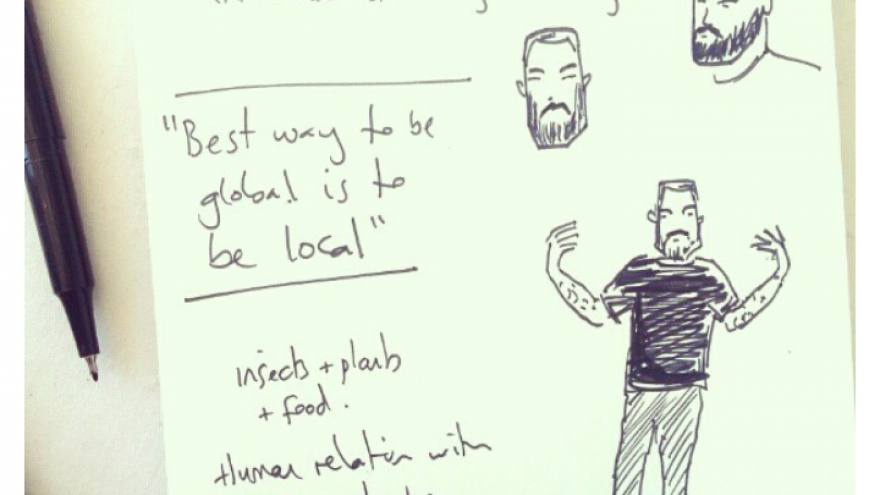 "Best way to be
global is to
be local"
insects + plants
+ food.
+ Human relation with